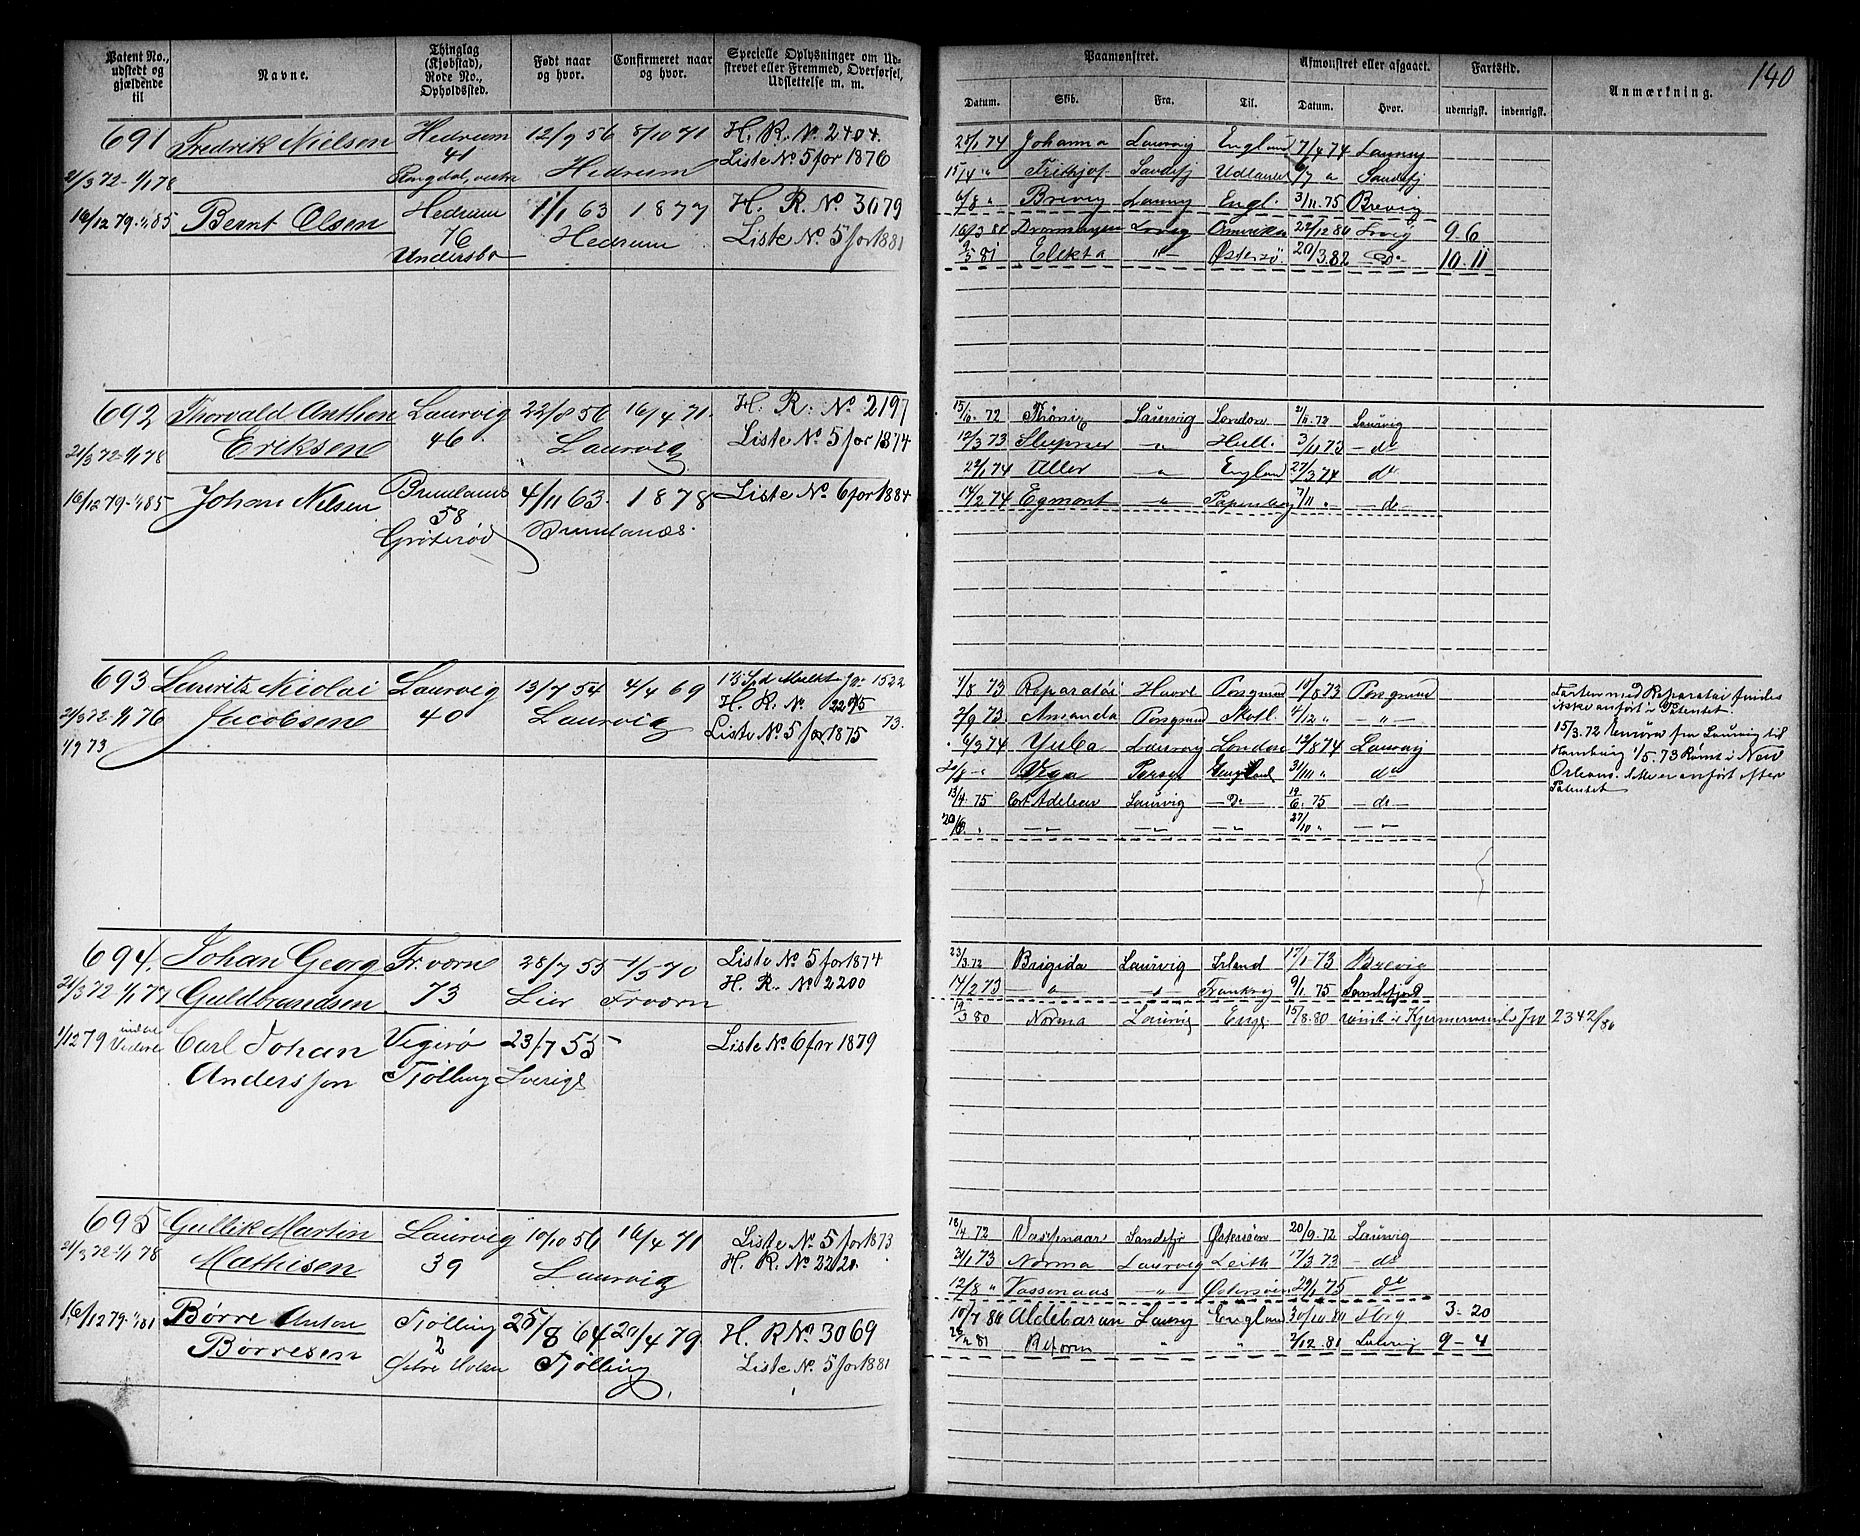 140
Patent No., udstedt og gjældende til
Navne.
Thinglag (Kjøbstad), Rode No., Opholdssted.
Født naar og hvor.
Confirmeret naar og hvor.
Specielle Oplysninger om Udstrevet eller Fremmed, Overførsel, Udslettelse m. m.
Paamønstret.
Afmønstret eller afgaaet.
Fartstid.
Anmærkning.
Datum. Skib. Fra. Til. Datum. Hvor. udenrigsk. indenrigsk.
691 Fredrik Nielsen Hedrum 12/9 56 8/10 71 H. R. No. 2404.
41 Liste No 5 for 1876
21/3 72-1/1 78 Hedrum
16/12 79-1/1 85 Bernt Olsen Hedrum 1/1 63 1877 H. R. No 3079
76 Hedrum Liste No 5 for 1881
Undersbo
25/1 74 Johanna Laurvig England 17/4 74 Laurvig
15/4 " Frithjof Sandefj Udlandet Sandefj
6/8 " Brevig Laurvig Engl. 3/11 75 Brevig
16/3 80 Amerika 22/12 80 9-6
81 Elekta " Østersø. 20/3.82 Do 10-11
692 Thorvald Anthon Laurvig 22/8 56 16/4 71. H. R. No 2197
Eriksen 46 Laurvig Liste No 5 for 1874
21/3 72-1/1 78
16/12 79-1/1 85 Johan Nilsen Brunlanæs 4/11 63. 1878 Liste No. 6 for 1884
58 Brunlanæs.
Grøterød
72 Laurvig London 72 Laurvig
12/3 73 Sleipner " Hull. 3/11 73 - do
22/1 74 Aller " England 27/3 74 do
14/2 74 Egmont " Papenburg 7/11 " - do -
693 Lauritz Nicolai Laurvig 13/7 54 4/4 69 1/2 Spd Mulkt Jr. 1522
Jacobsen 40 Laurvig H. R. No 2295 73.
21/3 72-1/1 76 Liste No. 5 for 1875
1/9 73
1/8 73 Reparatør Havre Porsgrund 10/8 73 Porsgrund
2/9 73 Amanda Porsgrund Skotl. 4/12 " - " -
6/3 74 Yuba Laurvig London 12/8 74 Laurvig
Vega England 31/10 " do
13/4. 75 Cort Adelaer Laurvig - Do - 19/6. 75 - do -
20/8. " - " - - " - - " - 27/10 " - " -
Farten med Reparatør findes
ikke anført i Patentet.
15/3. 72 fra Laurvig til
Hamburg 1/5.73 Rømt i New
Orleans. anført efter
Patentet
694. Johan Georg Fr.vorn 28/7 55 1/5 70 Liste No 5 for 1874
21/3 72-1/1 77 Guldbrandsen 73 Lier Fr.vorn H. R. No. 2200
1/12 79 Carl Johan Vigerø 23/7 55 Liste No. 6 for 1879
Andersson Tjølling Sverige
23/3.72 Brigida Laurvig Irland 17/1 73 Brevig
14/2 73 - " - 9/1 75 Sandefjord
19/3 80 Norma Laurvig Engl. 15/8.80 rømt i 2342/80
695 Gullik Martin Laurvig 10/10 56 16/4 71 Liste No. 5 for 1873
Mathisen 39 Laurvig H. R. No 2220
21/3 72-1/1 78
16/12 79-1/1 81 Børre Anton Tjølling 25/8 64 20/4 79 H. R No. 3069
Børresen 2 Tjølling Liste No. 5 for 1881
18/4 72 Vassenaar Sandefjr Østersøen 20/9.72 Laurvig
31/1 73 Norma Laurvig Leith 17/3 73 - do
12/8 " Vassenaas - " - Østersøen 29/1 75 do
10/7 80 Aldebaran Laurvig England 30/10 80 3-20
81 Reform " " 2/12.81 Laurvig 9-4